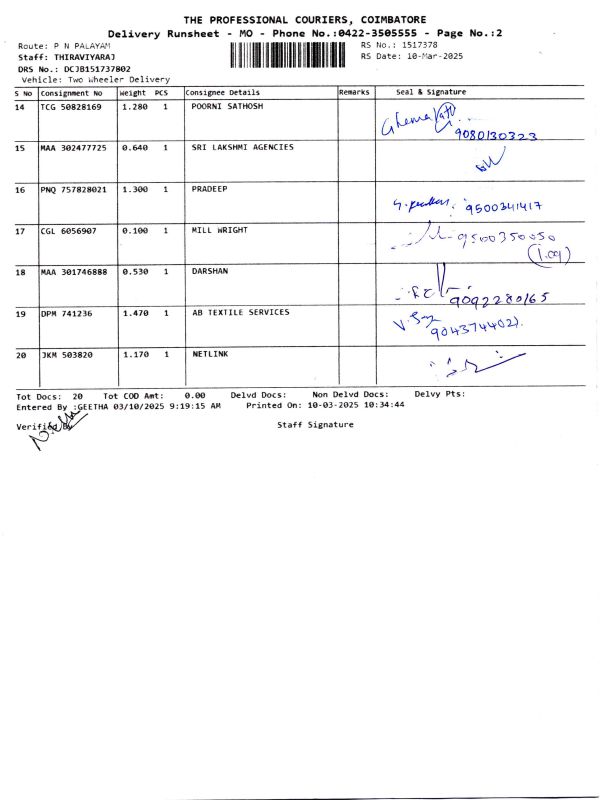 THE PROFESSIONAL COURIERS, COIMBATORE
Delivery Runsheet - MO - Phone No.:0422-3505555 - Page No.:2
Route: P N PALAYAM
RS No.: 1517378
Staff: THIRAVIYARAJ
RS Date: 10-Mar-2025
DRS No.: DCJB151737802
Vehicle: Two Wheeler Delivery
S No Consignment No Weight PCS Consignee Details Remarks Seal & Signature
14 TCG 50828169 1.280 1 POORNI SATHOSH
9080130323
15 MAA 302477725 0.640 1 SRI LAKSHMI AGENCIES
16 PNQ 757828021 1.300 1 PRADEEP
9500341417
17 CGL 6056907 0.100 1 MILL WRIGHT
9500350050
18 MAA 301746888 0.530 1 DARSHAN
9092280165
19 DPM 741236 1.470 1 AB TEXTILE SERVICES
20 JKM 503820 1.170 1 NETLINK
Tot Docs: 20 Tot COD Amt: 0.00 Delvd Docs: Non Delvd Docs: Delvy Pts:
Entered By :GEETHA 03/10/2025 9:19:15 AM Printed On: 10-03-2025 10:34:44
Verified By
Staff Signature